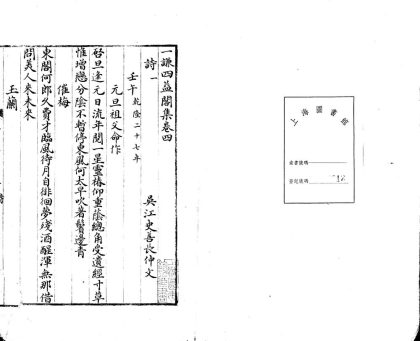 一謙四益閣集卷四
吳江史善長仲文
詩一
壬午 乾隆二十七年
元旦祖父命作
好旦逢元日流年閱一星靈椿仰重蔭總角受遺經寸草
惟增戀分陰不暫停東風何太早吹著鬢邊青
催梅
東閣何郎久費才臨風待月自徘徊夢殘酒醒渾無那借
問美人來未來
玉蘭
上海圖書館
索書號碼
登記號碼